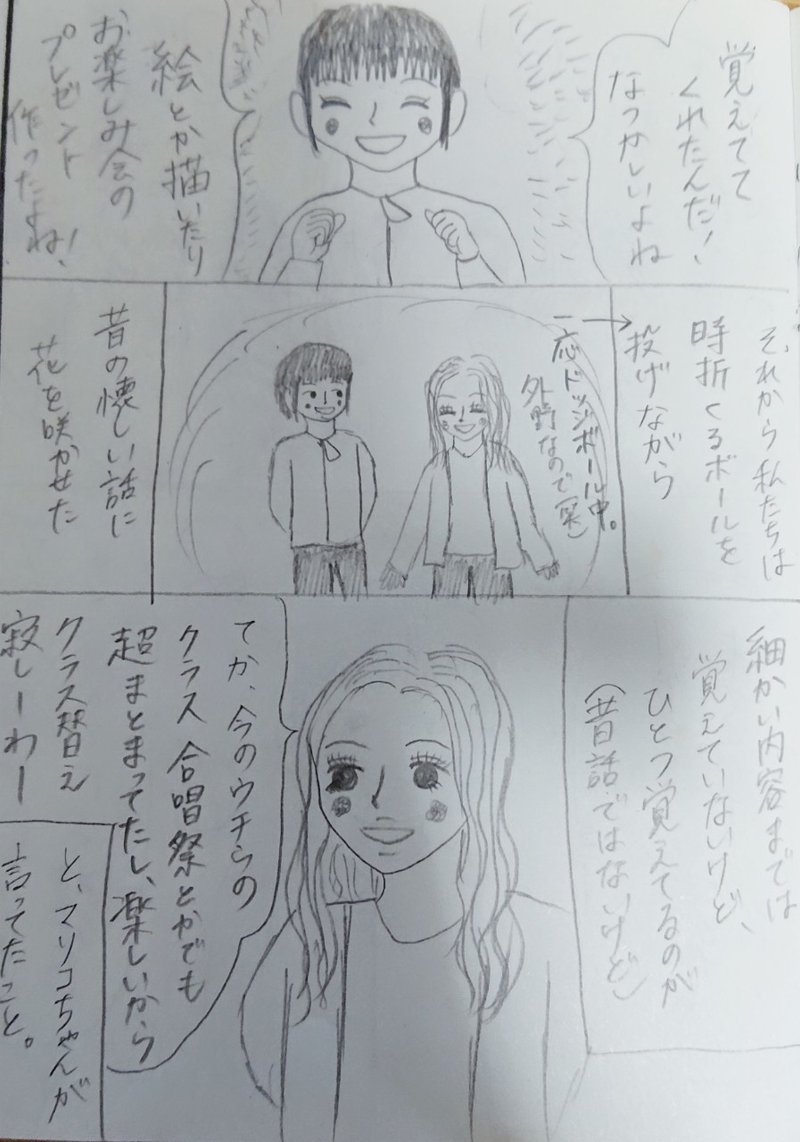 覚えてて
くれたんだ!
なつかしいよね
絵とか描いたり
お楽しみ会の
プレゼント
作ったよね!
それから私たちは
時折くるボールを
投げながら
一応ドッジボール中。
外野なので(笑)
昔の懐しい話に
花を咲かせた
細かい内容までは
覚えていないけど、
ひとつ覚えてるのが
(昔話ではないけど)
てか、今のウチらの
クラス合唱祭とかでも
超まとまってたし、楽しいから
クラス替え
寂しーわー
と、マリコちゃんが
言ってたこと。